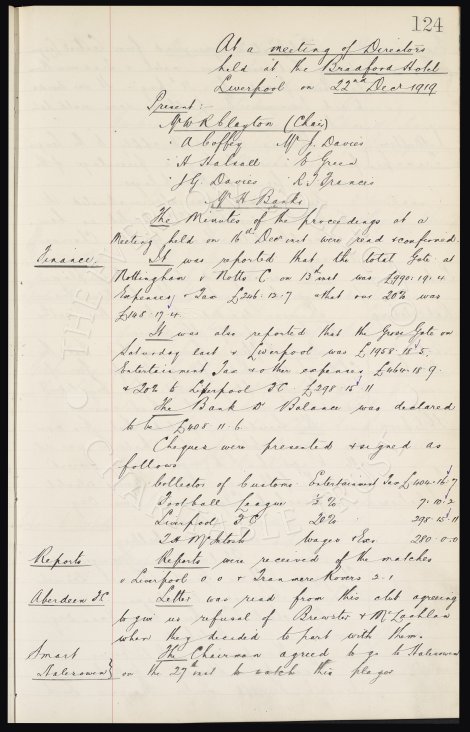 124
At a meeting of Directors
held at the Bradford Hotel
Liverpool on 22nd Decr 1919
Present:-
Mr W R Clayton (Chair)
" A Coffey Mr J. Davies
" H Halsall " C Green
" J G. Davies " R T Frances
Mr H Banks
The Minutes of the proceedings at a
Meeting held on 16th Decr inst were read & confirmed.
Finance. It was reported that the total Gate at
Nottingham v Notts C on 13th inst was £990.19.4
Expenses & Tax £246.12.7 & that our 20% was
£148.17.4.
It was also reported that the Gross Gate on
Saturday last v Liverpool was £1958.15.5.
Entertainment Tax & other expenses £464.18.9.
& 20% to Liverpool FC £298.15.11
The Bank Dr Balance was declared
to be £408.11.6.
Cheques were presented & signed as
follows
Collector of Customs Entertainment Tax £404.16.7
Football League ½% 7.10.2
Liverpool FC 20% 298.15.11
T H McIntosh Wages & Exs 280.0.0
Reports Reports were received of the matches
v Liverpool 0.0 & Tranmere Rovers 2.1
Aberdeen FC Letter was read from this club agreeing
to give us refusal of Brewster & McLachlan
when they decided to part with them.
Smart The Chairman agreed to go to Halesowen
Halesowen on the 27th inst to watch this player